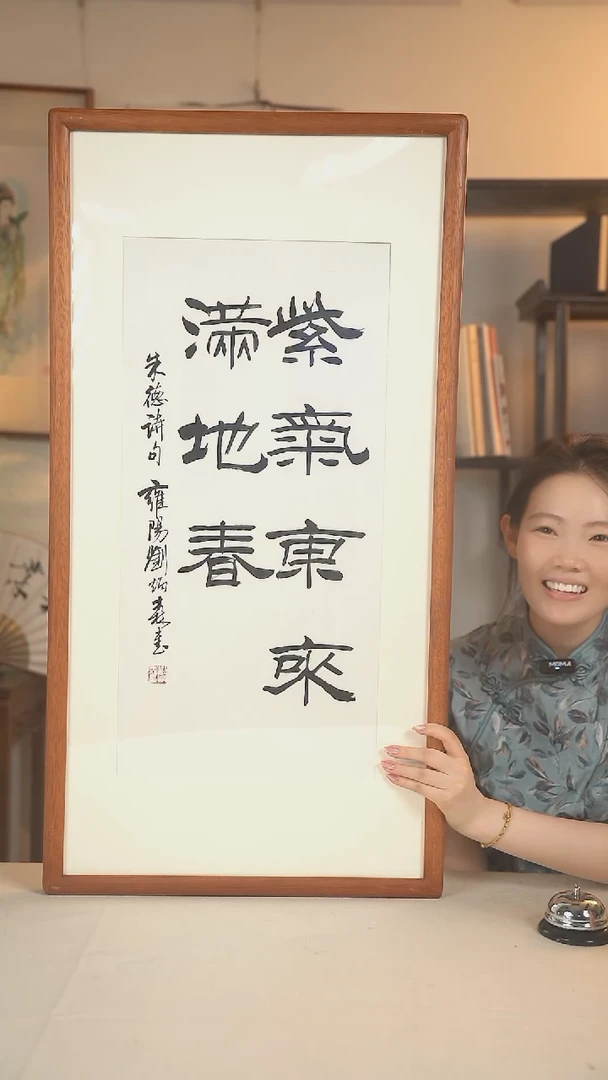 紫氣東來
滿地春
朱德詩句 雍陽劉炳森書
MOMA